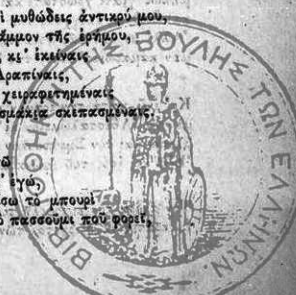 ὶ μυθώδεις ἀντικρύ μου,
άμμον τῆς ἐρήμου,
κι' ἐκείναις
Ἀραπίναις,
χειραφετημέναις
σμάκια σκεπασμέναις.
ἐγώ,
σω τὸ μπουρὶ
πασσοῦμι ποῦ φορεῖ,
ΒΙΒΛΙΟΘΗΚΗ ΤΗΣ ΒΟΥΛΗΣ ΤΩΝ ΕΛΛΗΝΩΝ